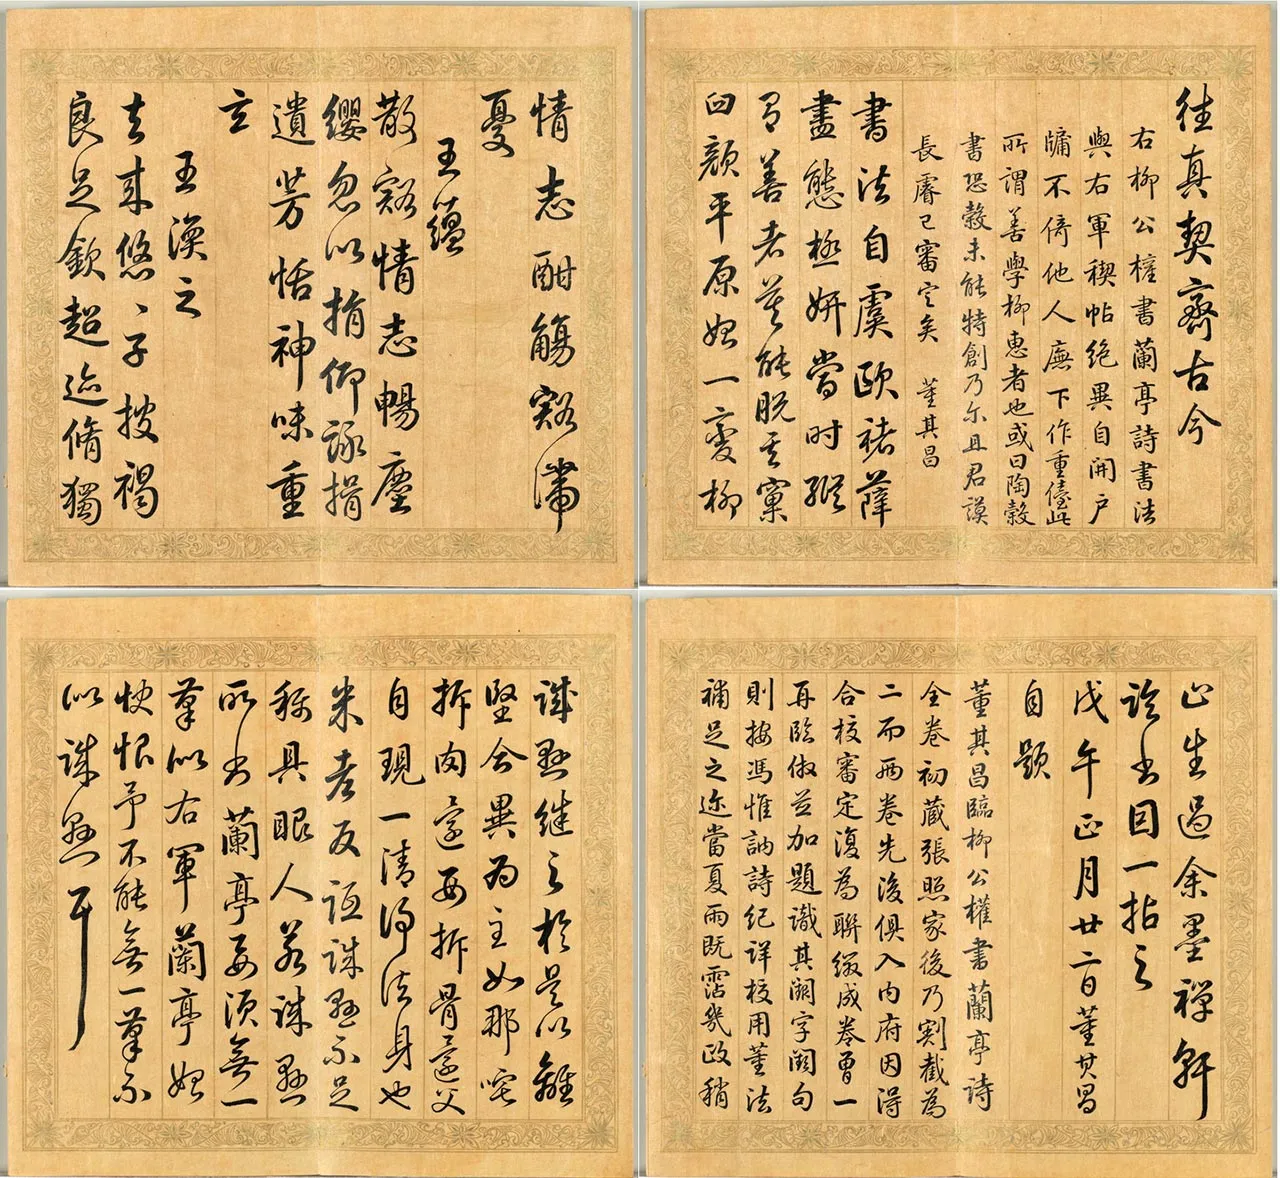 情志酣觴豁滯
憂
王蘊
散豁情志暢塵
纓忽以捐仰詠挹
遺芳怡神味重
玄
王渙之
去來悠〻子披褐
良足欽超迹脩獨
往真契齊古今
右柳公權書蘭亭詩書法
與右軍禊帖絕異自開戶
牖不倚他人廡下作重儓此
所謂善學柳惠者也或曰陶穀
書恐穀未能特創乃尔且君謨
長睿已審定矣 董其昌
書法自虞歐褚薛
盡態極妍當時縱
有善者莫能脫其窠
臼顏平原始一變柳
誠懸繼之於是以離
堅合異為主如那吒
拆肉還母拆骨還父
自現一清淨法身也
米老反詆誠懸不足
稱具眼人若誠懸
所書蘭亭要須無一
筆似右軍蘭亭始
快恨予不能無一筆不
似誠懸耳
止生過余墨禪軒
論書因一拈之
戊午正月廿二日董其昌
自題
董其昌臨柳公權書蘭亭詩
全卷初藏張照家後乃割截為
二而兩卷先後俱入內府因得
合校審定復為聯綴成卷曾一
再臨倣並加題識其闕字闕句
則按馮惟訥詩紀詳校用董法
補足之迩當夏雨既霑幾政稍